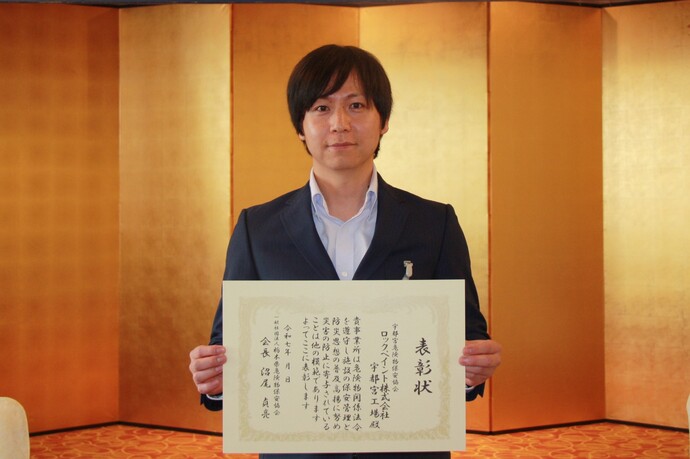 表彰状
宇都宮危険物保安協会
ロックペイント株式会社
宇都宮工場殿
貴事業所は危険物関係法令
を遵守し施設の保安管理と
防災思想の普及高揚に努め
災害の防止に寄与されている
ことは他の模範であります
よってここに表彰します
令和七年　月　日
一般社団法人栃木県危険物保安協会
会長　沼尾貞亮